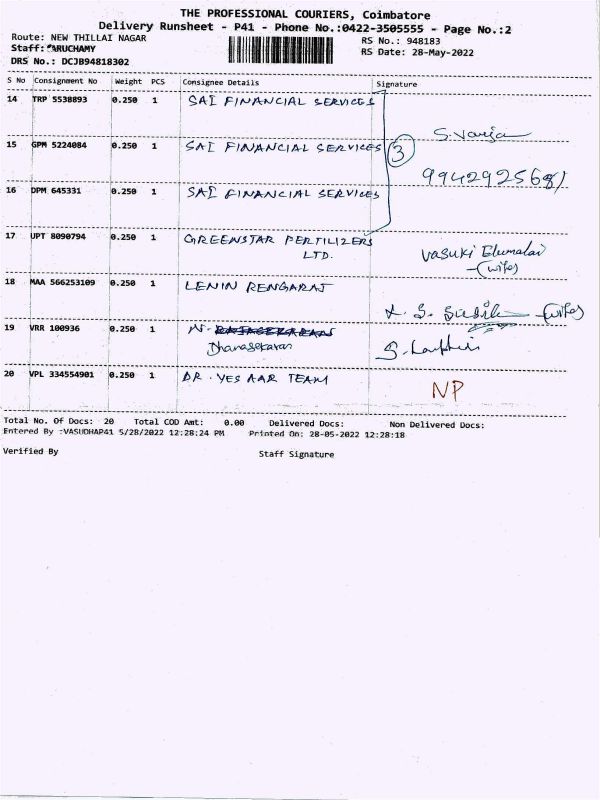 THE PROFESSIONAL COURIERS, Coimbatore
Delivery Runsheet - P41 - Phone No.:0422-3505555 - Page No.:2
Route: NEW THILLAI NAGAR
RS No.: 948183
Staff: MARUCHAMY
RS Date: 28-May-2022
DRS No.: DCJB94818302
S No Consignment No Weight PCS Consignee Details Signature
14 TRP 5538893 0.250 1 SAI FINANCIAL SERVICES
15 GPM 5224084 0.250 1 SAI FINANCIAL SERVICES 3
S. Varja
16 DPM 645331 0.250 1 SAI FINANCIAL SERVICES
9942925681
17 UPT 8090794 0.250 1 GREENSTAR FERTILIZERS
LTD.
Vasuki Elumalai
(wife)
18 MAA 566253109 0.250 1 LENIN RENGARAJ
(wife)
19 VRR 100936 0.250 1 Mr. RAJASEKARAN
Dhanasekaran
20 VPL 334554901 0.250 1 DR. YES AAR TEAM
NP
Total No. Of Docs: 20 Total COD Amt: 0.00 Delivered Docs: Non Delivered Docs:
Entered By :VASUDHAP41 5/28/2022 12:28:24 PM Printed On: 28-05-2022 12:28:18
Verified By Staff Signature